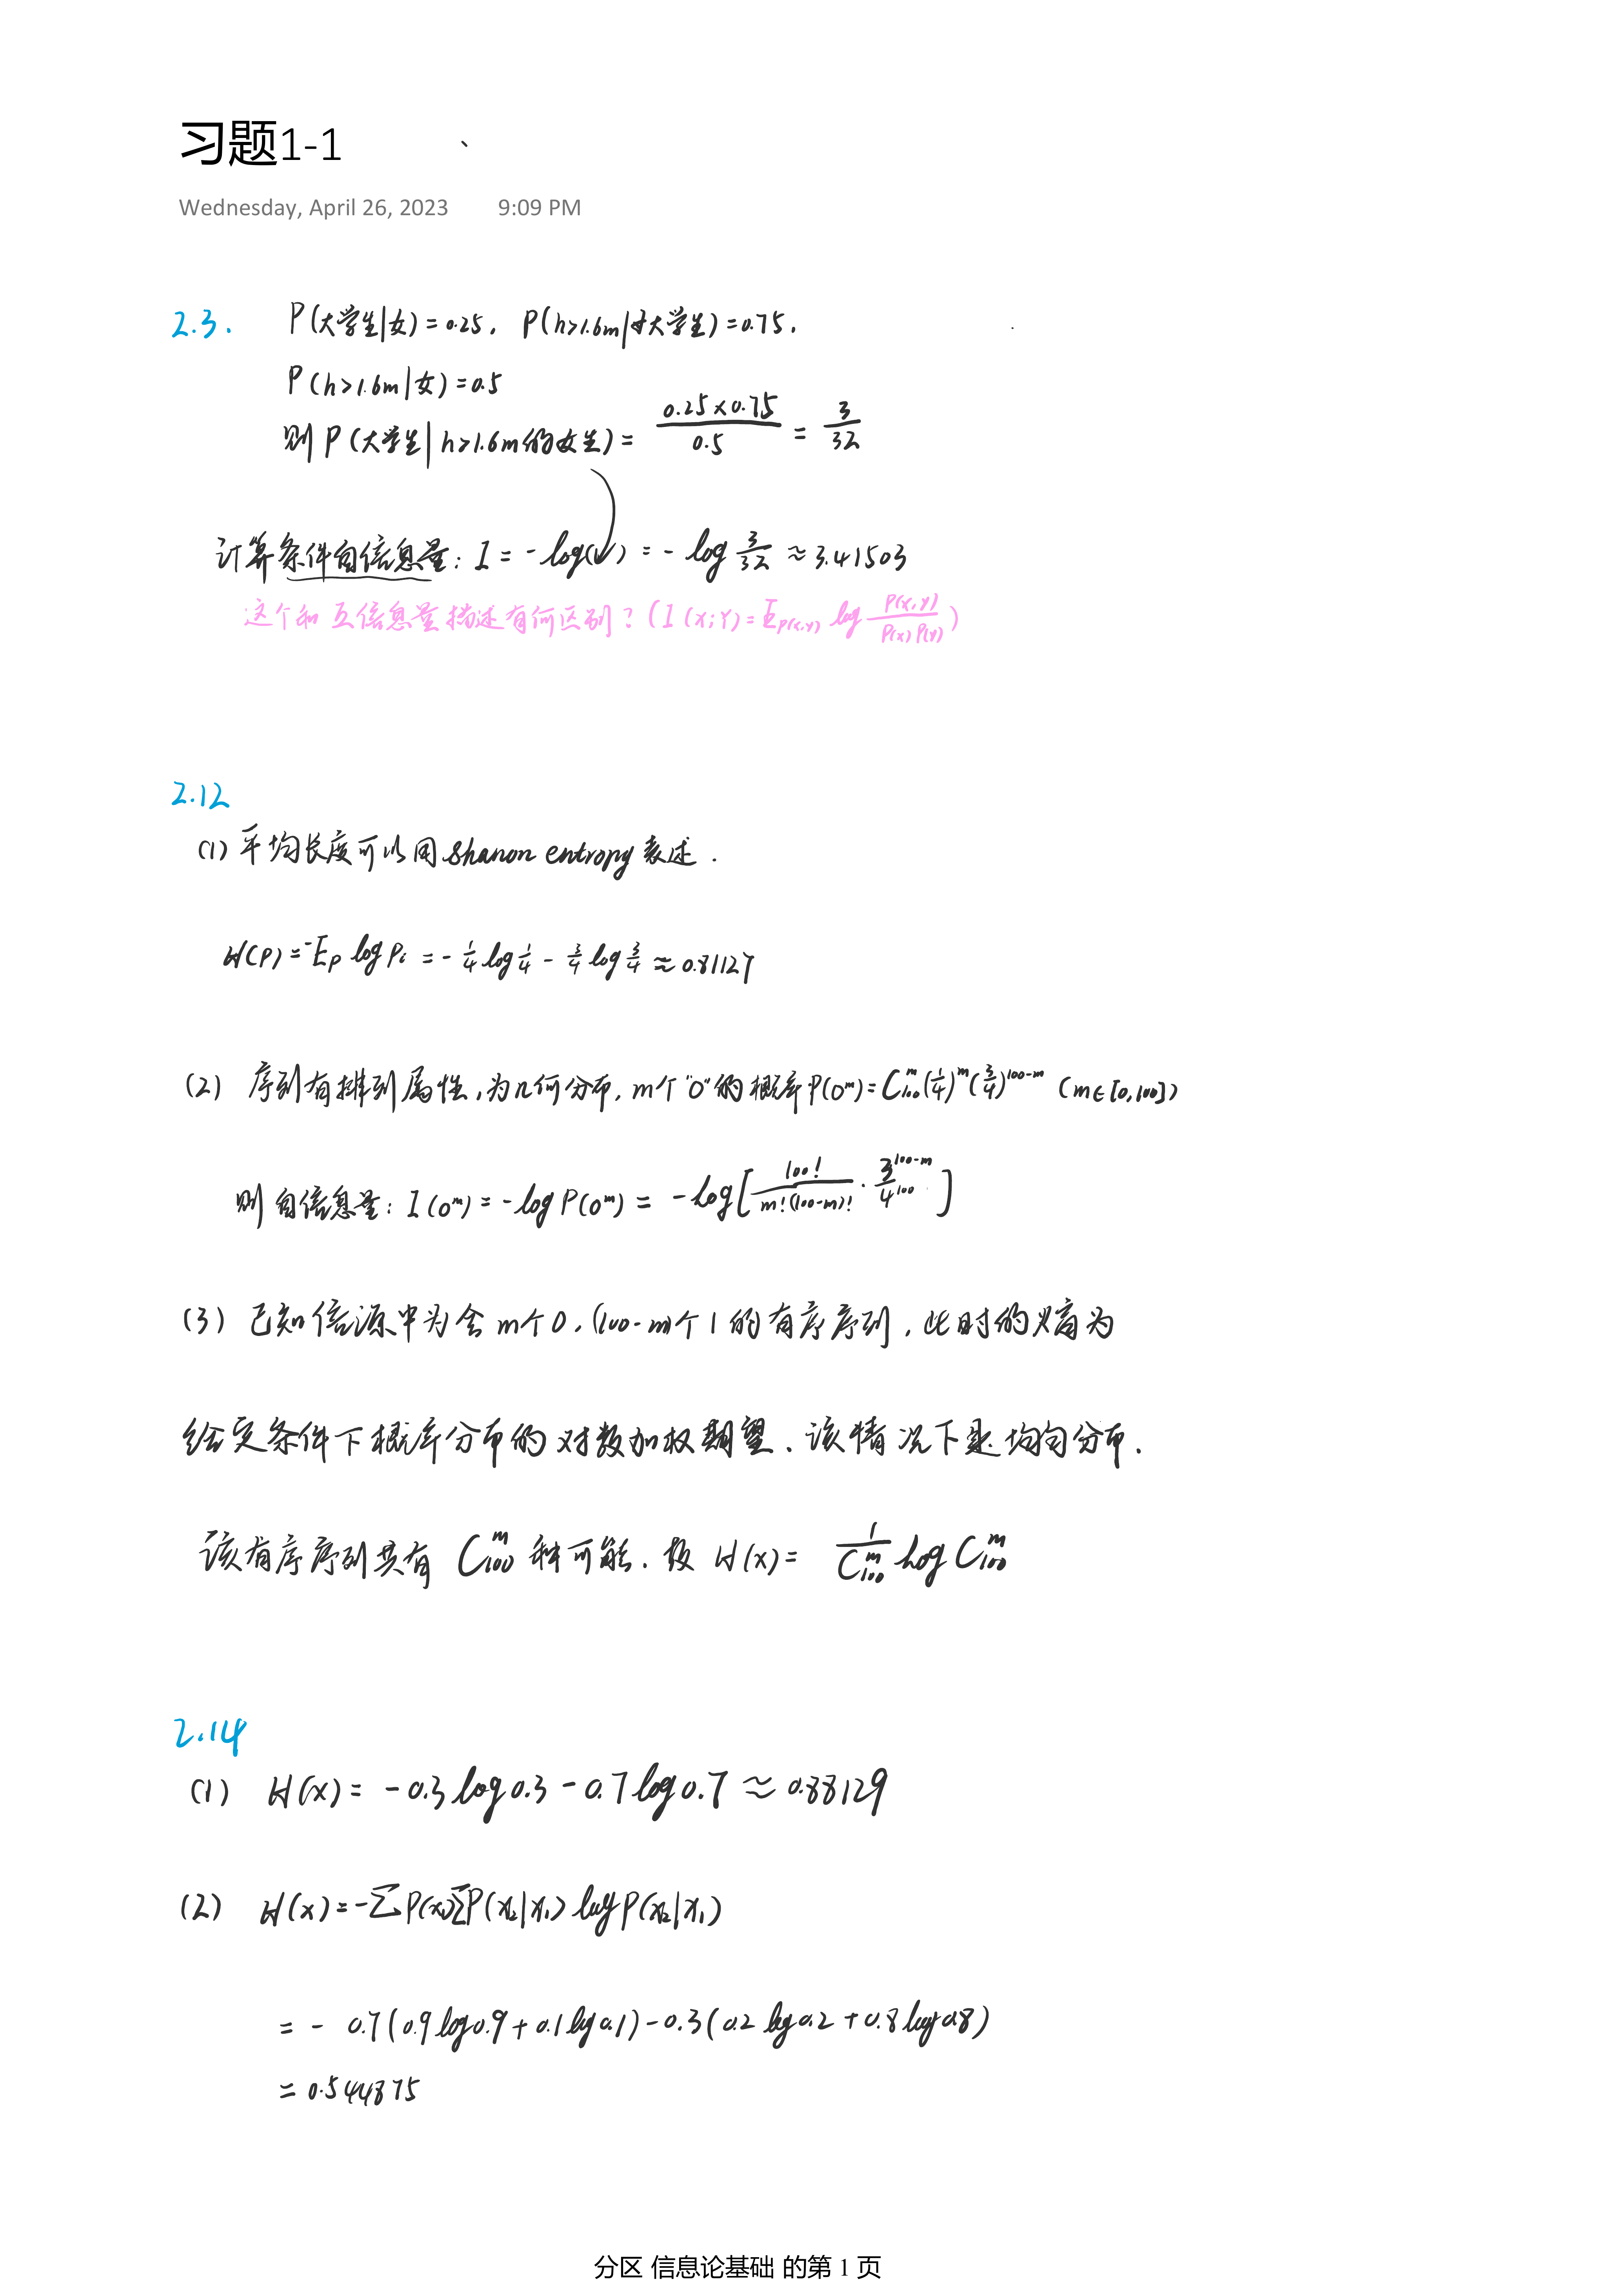 习题1-1
Wednesday, April 26, 2023 9:09 PM
2.3. P(大学生|女)=0.25, P(h>1.6m|女大学生)=0.75.
P(h>1.6m|女)=0.5
则 P(大学生|h>1.6m的女生)= \frac{0.25×0.75}{0.5} = \frac{3}{32}
计算条件自信息量: I = -log( ) = -log \frac{3}{32} ≈ 3.41503
这个和互信息量描述有何区别? (I(X;Y)=E_{P(x,y)} log \frac{P(x,y)}{P(x)P(y)})
2.12
(1) 平均长度可以用shanon entropy表述.
H(P)=-E_P log P_i = -\frac{1}{4}log\frac{1}{4} - \frac{3}{4}log\frac{3}{4} ≈ 0.81127
(2) 序列有排列属性,为几何分布, m个"0"的概率P(0^m)=C_{100}^m(\frac{1}{4})^m(\frac{3}{4})^{100-m} (m∈[0,100])
则自信息量: I(0^m) = -log P(0^m) = -log[\frac{100!}{m!(100-m)!}·\frac{3^{100-m}}{4^{100}}]
(3) 已知信源中为含m个0,(100-m)个1的有序序列,此时的熵为
给定条件下概率分布的对数加权期望.该情况下是均匀分布.
该有序序列共有 C_{100}^m 种可能. 故 H(x)= \frac{1}{C_{100}^m} log C_{100}^m
2.14
(1) H(x) = -0.3log0.3 - 0.7log0.7 ≈ 0.88129
(2) H(x)=-∑P(x_1)∑P(x_2|x_1) log P(x_2|x_1)
= - 0.7(0.9log0.9+0.1log0.1)-0.3(0.2log0.2+0.8log0.8)
= 0.544875
分区 信息论基础 的第 1 页